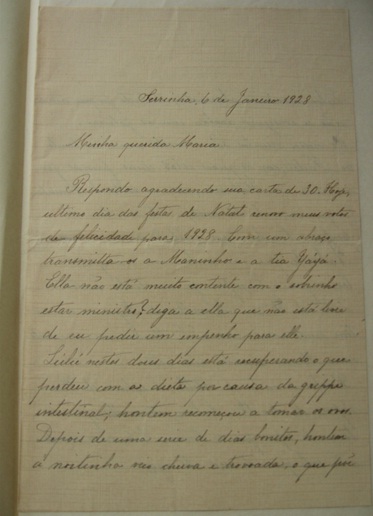 Serrinha, 6 de Janeiro 1928
Minha querida Maria
Respondo agradecendo sua carta de 30. Hoje,
ultimo dia das festas de Natal renovo meus votos
de felicidade para 1928. Com um abraço
transmitta-os a Maninho e a tia Yáyá.
Ella não está muito contente com o sobrinho
estar ministro? diga a ella que não está livre
de eu pedir um empenho para elle.
nestes dous dias está recuperando o que
perdeu com as dieta por causa da grippe
intestinal; hontem recomeçou a tomar os ovos.
Depois de uma serie de dias bonitos, hontem
á noitinha veio chuva e trovoada, o que poz